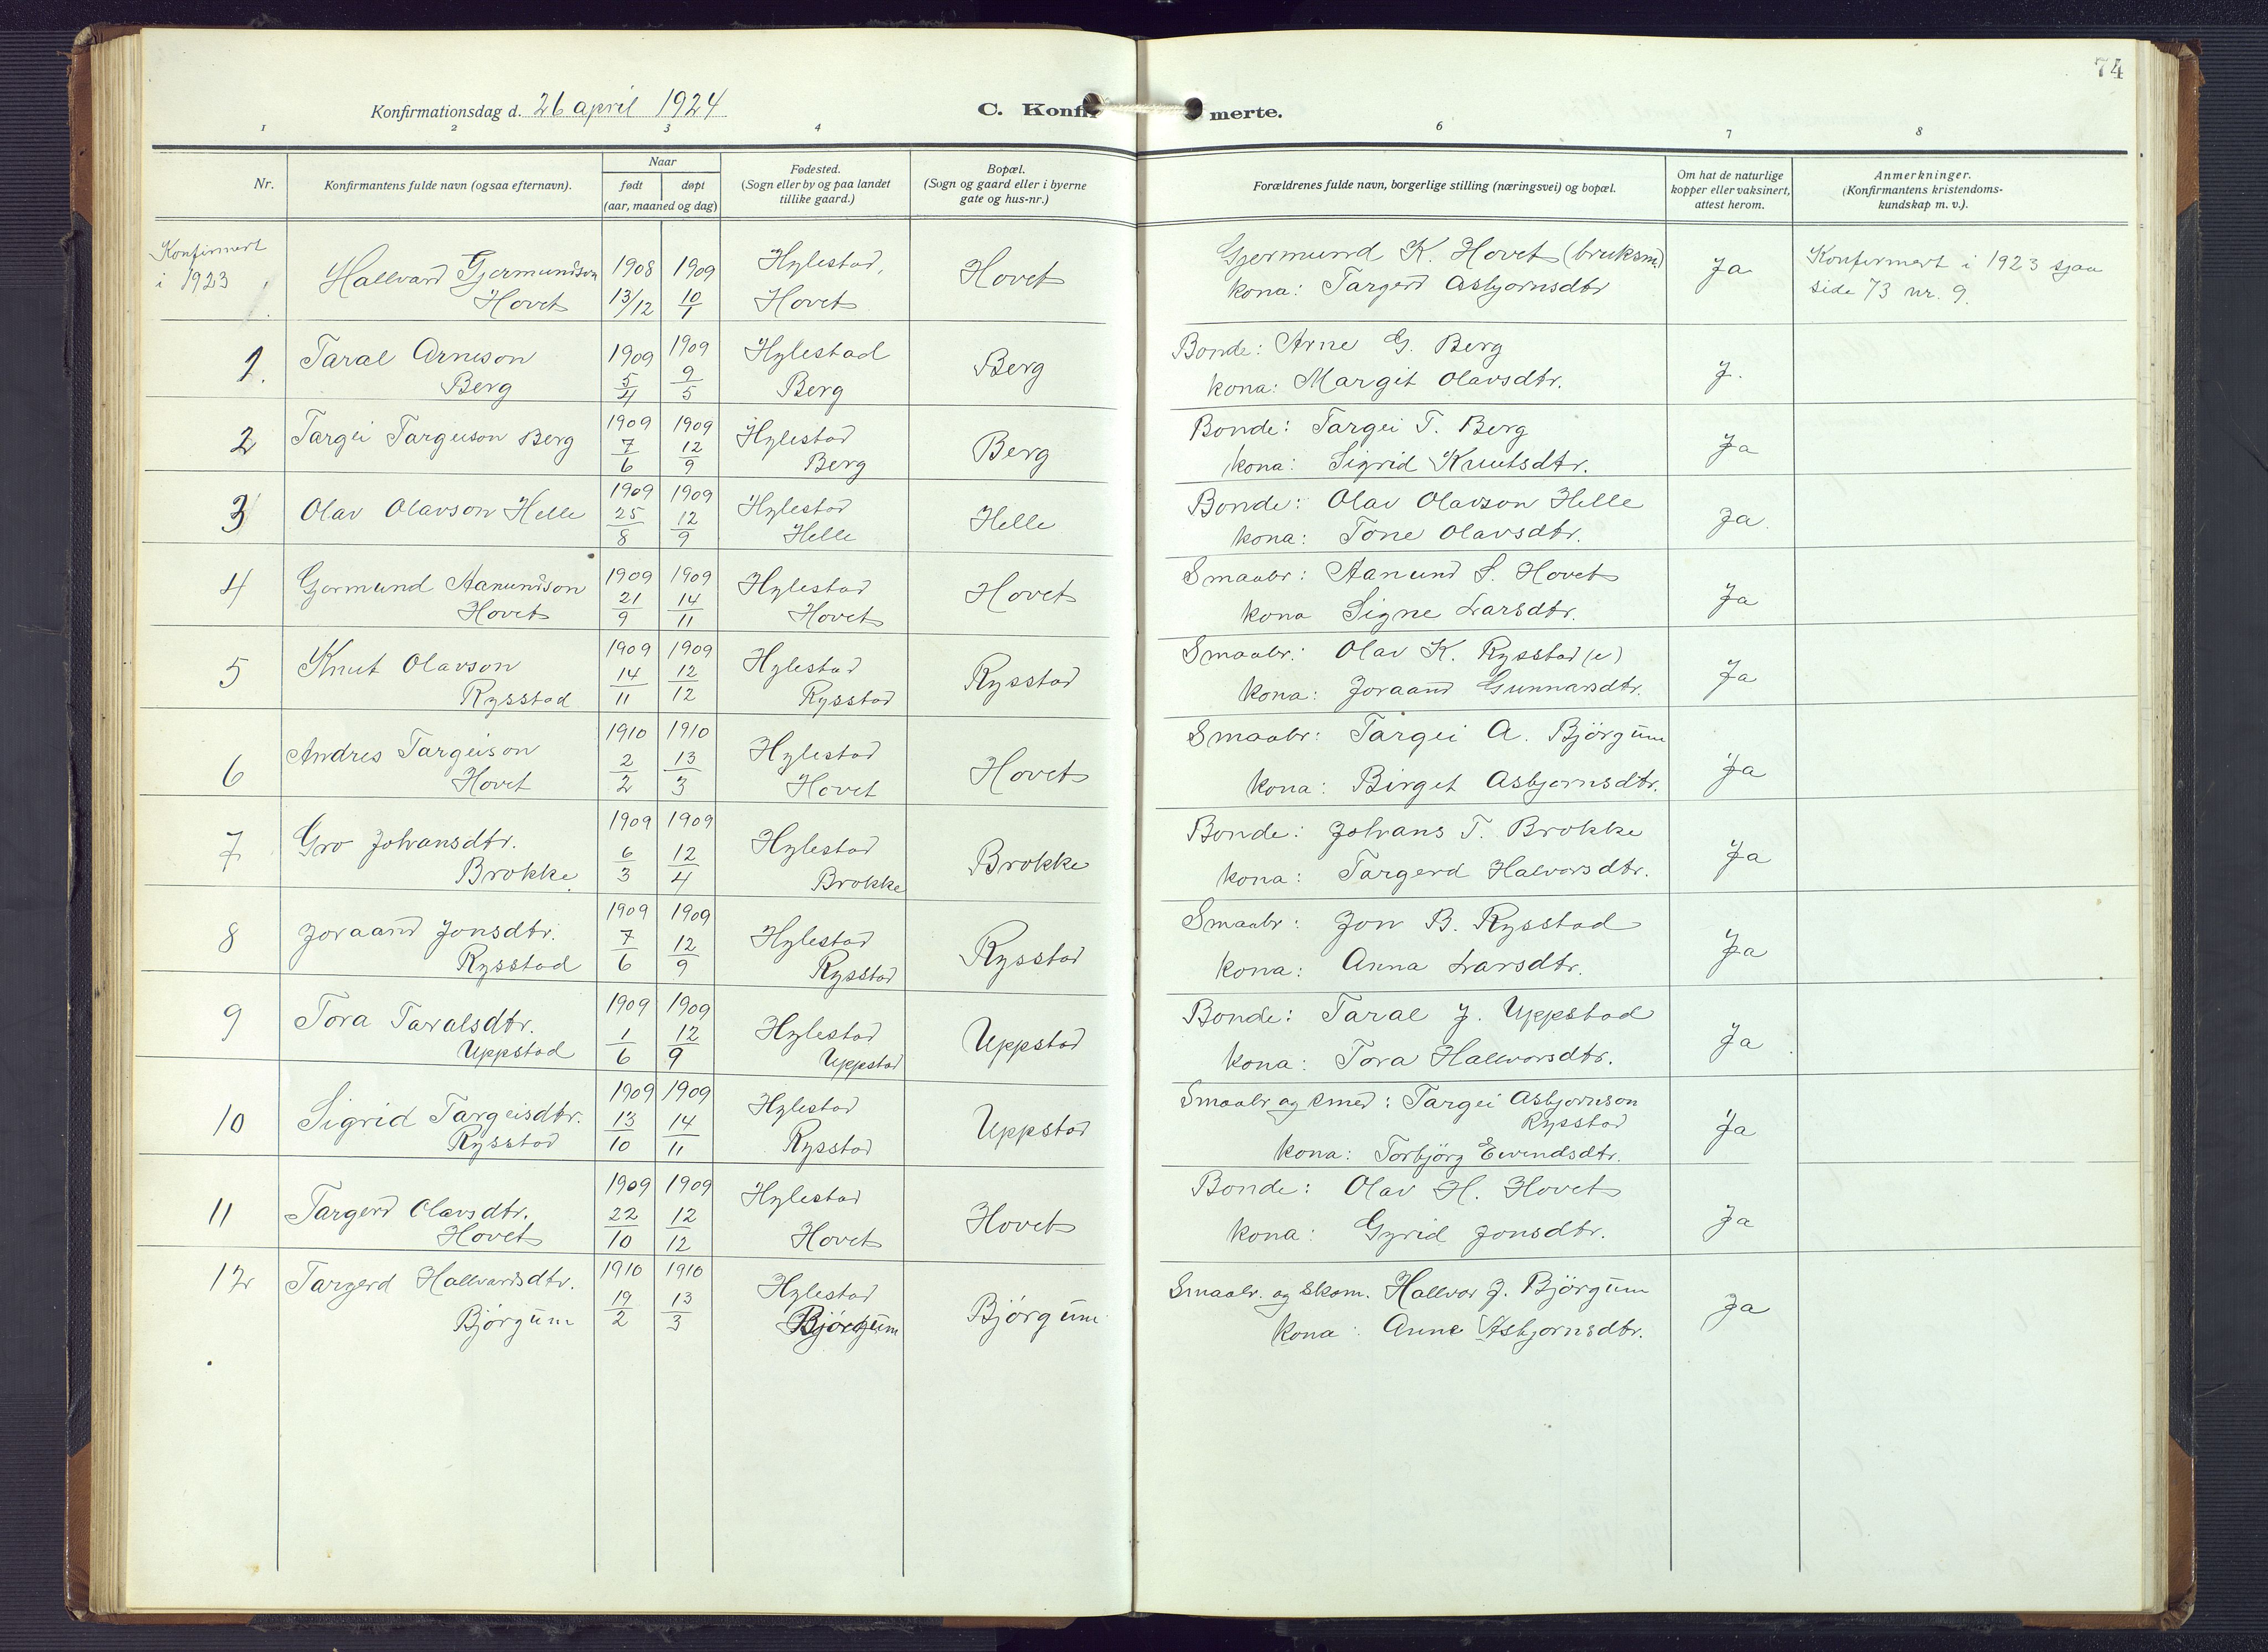 74
Konfirmationsdag d. 26 april 1924
C. Konfir merte.
1 2 3 4 6 7 8
Nr.
Konfirmantens fulde navn (ogsaa efternavn).
Naar
født døpt
(aar, maaned og dag)
Fødested.
(Sogn eller by og paa landet
tillike gaard.)
Bopæl.
(Sogn og gaard eller i byerne
gate og hus-nr.)
Forældrenes fulde navn, borgerlige stilling (næringsvei) og bopæl.
Om hat de naturlige
kopper eller vaksinert,
attest herom.
Anmerkninger.
(Konfirmantens kristendoms-
kundskap m. v.).
Konfirmert
i 1923
Hallvard Gjermundson
Hovet
1908 1909
13/12 10/1
Hylestad,
Hovet
Hovet
Gjermund K. Hovet (bruksm)
kona: Targerd Asbjornsdtr
Ja
Konfirmert i 1923 sjaa
side 73 nr. 9.
1.
Taral Arneson
Berg
1909 1909
5/4 9/5
Hylestad
Berg
Berg
Bonde: Arne G. Berg
kona: Margit Olavsdtr.
J.
2
Targei Targeison Berg
1909 1909
7/6 12/9
Hylestad
Berg
Berg
Bonde: Targei T. Berg
kona: Sigrid Knutsdtr.
Ja
3
Olav Olavson Helle
1909 1909
25/8 12/9
Hylestad
Helle
Helle
Bonde: Olav Olavson Helle
kona: Tone Olavsdtr.
Ja.
4
Gjermund Aanundson
Hovet
1909 1909
21/9 14/11
Hylestad
Hovet
Hovet
Smaabr: Aanund S. Hovet
kona Signe Larsdtr.
Ja
5
Knut Olavson
Rysstad
1909 1909
14/11 12/12
Hylestad
Rysstad
Rysstad
Smaabr: Olav K. Rysstad (e)
kona: Joraand Gunnarsdtr.
Ja
6
Andres Targeison
Hovet
1910 1910
2/2 13/3
Hylestad
Hovet
Hovet
Smaabr: Targei A. Björgum
kona: Birget Asbjornsdtr.
Ja
7
Gro Johansdtr.
Brokke
1909 1909
6/3 12/4
Hylestad
Brokke
Brokke
Bonde: Johans T. Brokke
kona: Targerd Halvorsdtr.
Ja
8
Joraand Jonsdtr.
Rysstad
1909 1909
7/6 12/9
Hylestad
Rysstad
Rysstad
Smaabr: Jon B. Rysstad
kona: Anna Larsdtr.
Ja
9
Tora Taralsdtr.
Uppstad
1909 1909
1/6 12/9
Hylestad
Uppstad
Uppstad
Bonde: Taral J. Uppstad
kona: Tora Hallvorsdtr.
Ja
10
Sigrid Targeisdtr.
Rysstad
1909 1909
13/10 14/11
Hylestad
Rysstad
Uppstad
Smaabr og smed: Targei Asbjornson
Rysstad
kona: Torbjörg Eivindsdtr.
Ja
11
Targerd Olavsdtr.
Hovet
1909 1909
22/10 12/12
Hylestad
Hovet
Hovet
Bonde: Olav H. Hovet
kona: Gyrid Jonsdtr.
Ja
12
Targerd Hallvardsdtr.
Björgum
1910 1910
19/2 13/3
Hylestad
Björgum
Björgum
Smaabr. og skom. Hallvor J. Björgum
kona: Anne Asbjornsdtr.
Ja